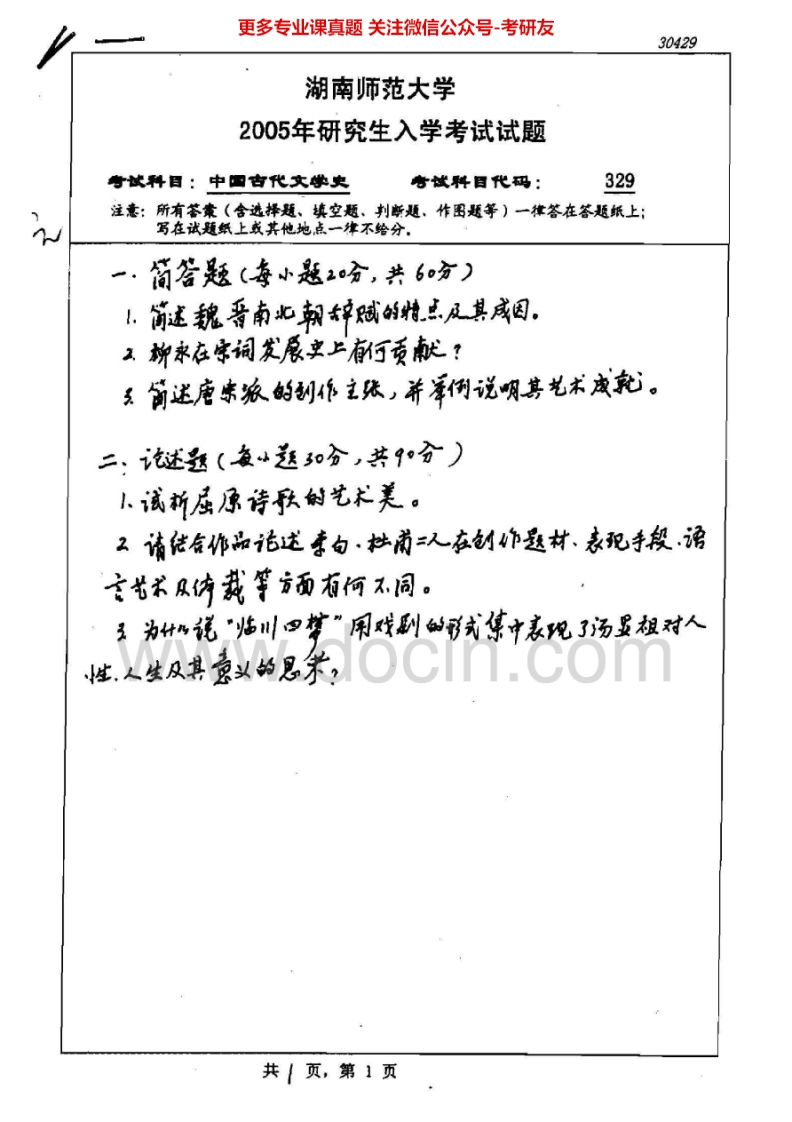 更多专业课真题 关注微信公众号-考研友
30429
湖南师范大学
2005年研究生入学考试试题
考试科目：中国古代文学史 考试科目代码：329
注意：所有答案（含选择题、填空题、判断题、作图题等）一律答在答题纸上；
写在试题纸上或其他地点一律不给分。
一．简答题（每小题20分，共60分）
1. 简述魏晋南北朝辞赋的特点及其成因。
2. 柳永在宋词发展史上有何贡献？
3. 简述唐宋派的创作主张，并举例说明其艺术成就。
二、论述题（每小题30分，共90分）
1. 试析屈原诗歌的艺术美。
2 请结合作品论述李白、杜甫二人在创作题材、表现手段、语
言艺术及体裁等方面有何不同。
3 为什么说“临川四梦”用戏剧的形式集中表现了汤显祖对人
性、人生及其意义的思考？
www.docin.com
共 1 页，第 1 页